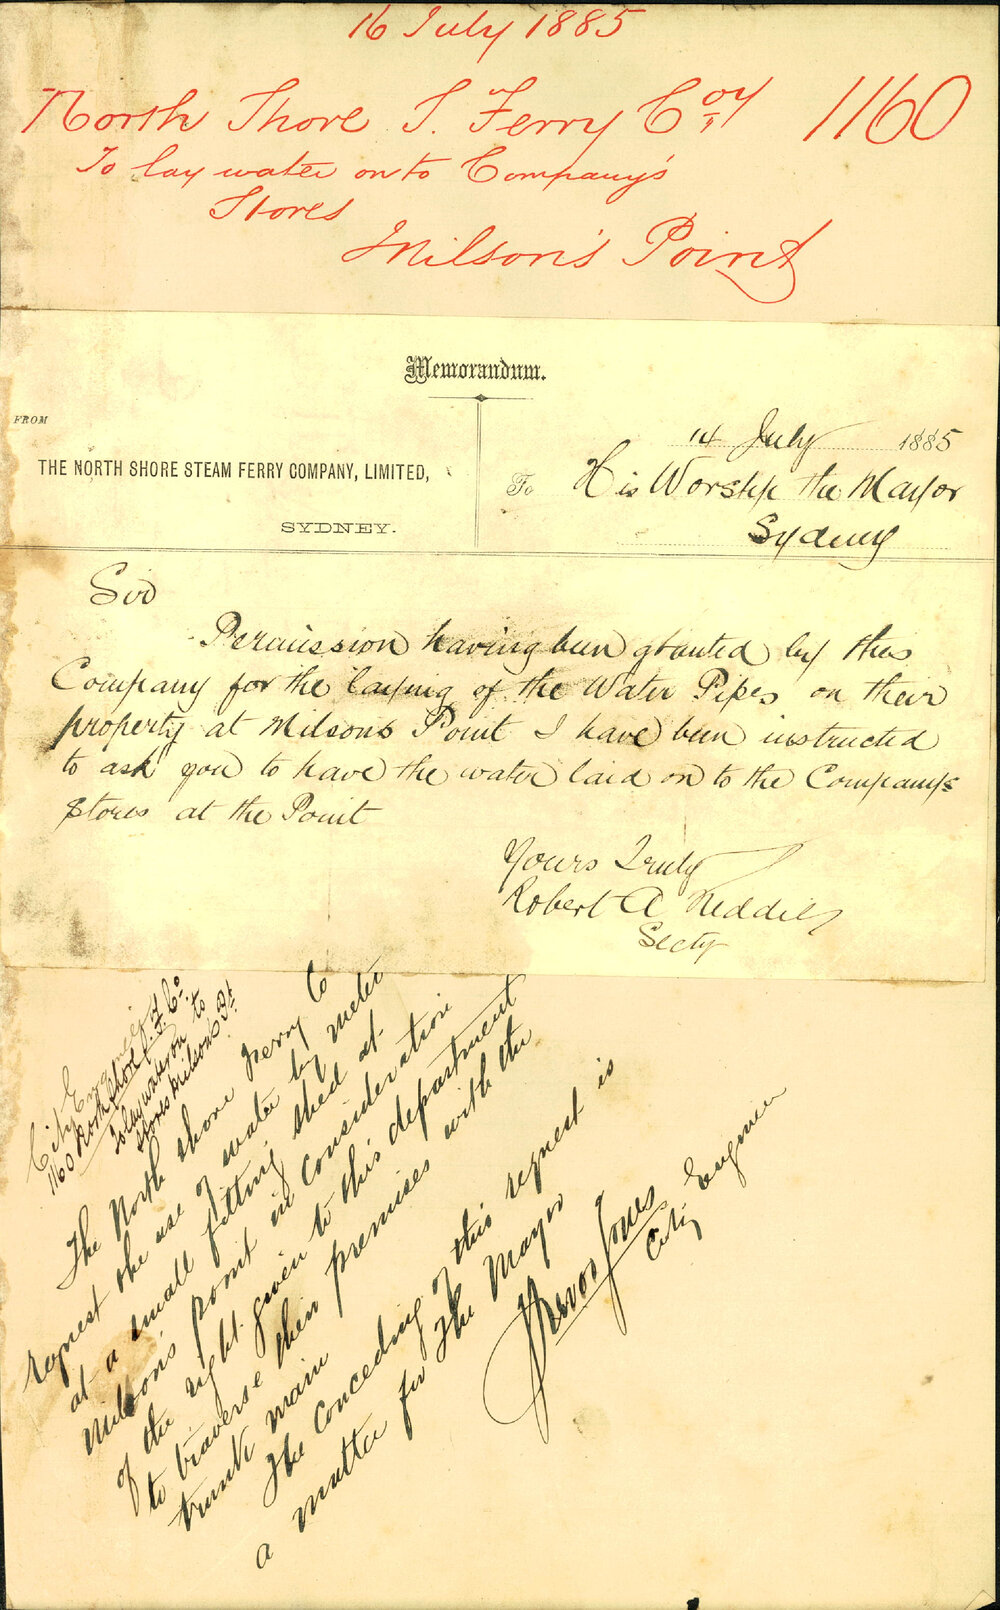 16 July 1885
North Shore S. Ferry Coy 1160
To lay water on to Company's
Stores
Milson's Point
Memorandum.
FROM
THE NORTH SHORE STEAM FERRY COMPANY, LIMITED,
SYDNEY.
14 July 1885
To His Worship the Mayor
Sydney
Sir
Permission having been granted by this
Company for the laying of the Water Pipes on their
property at Milsons Point I have been instructed
to ask you to have the water laid on to the Companys
stores at the Point
Yours Truly
Robert A Neddie
Secty
City Engineer
1160 North Shore S. F. Co.
To lay water on to
stores Milsons Pt
The North Shore Ferry Co
request the use of water by meter
at a small fitting shed at
Milson's point in consideration
of the right given to this department
to traverse their premises with the
trunk main
The conceding of this request is
a matter for The Mayor
Trevor Jones
City Engineer